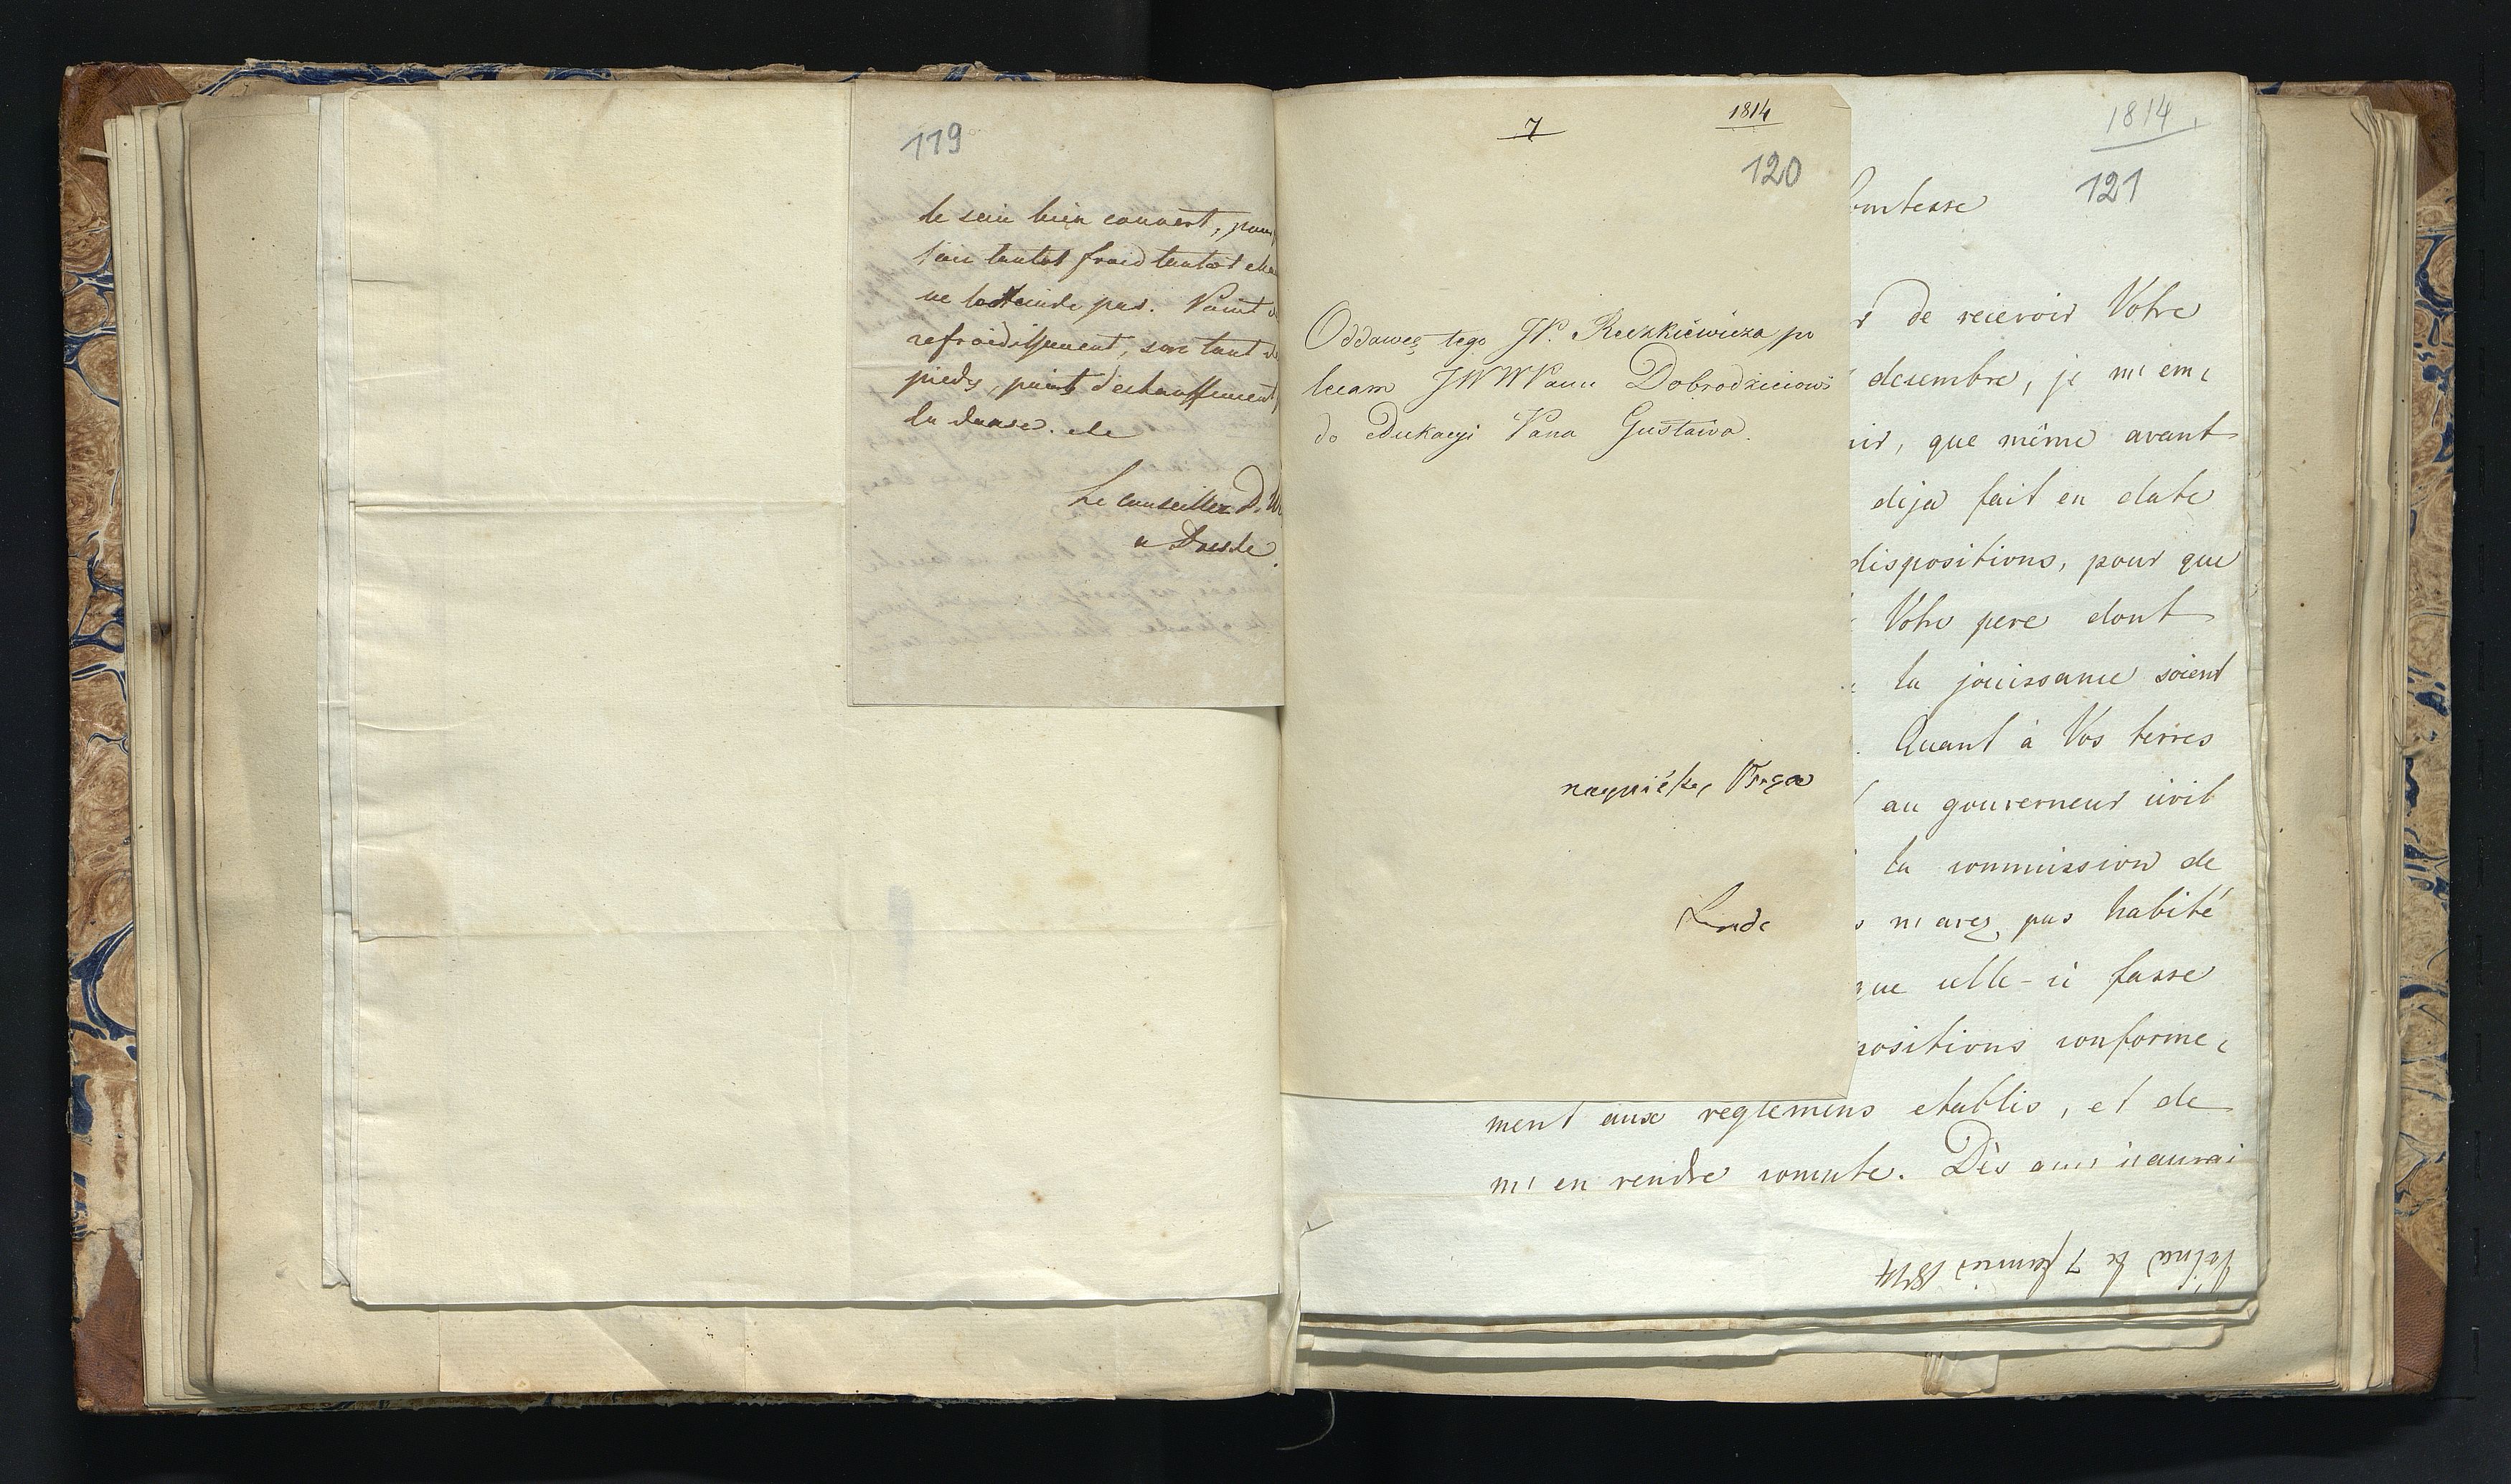 119
le sein bien couvert, pour
l'air tantot froid tantot
ne pas. Point
refroidissement, sur tout
pieds, point d'echauffement
la danse. etc
Le conseiller D.
a Dresde
7
1814
120
Oddawcę tego JP. Reszkiewicza po
lecam JWWPanu Dobrodziciowi
do Edukacyi Pana Gustawa.
Linde
1814
121
omtesse
de recevoir Votre
decembre, je m'em,
que même avant
deja fait en date
dispositions, pour que
Votre pere dont
la jouissance soient
Quant à Vos terres
au gouverneur civil
la commission de
n'avez pas habité
que celle-ci fasse
positions conforme,
ment aux reglemens etablis, et de
m'en rendre compte. Dès
Vilna le 7 janvier 1814